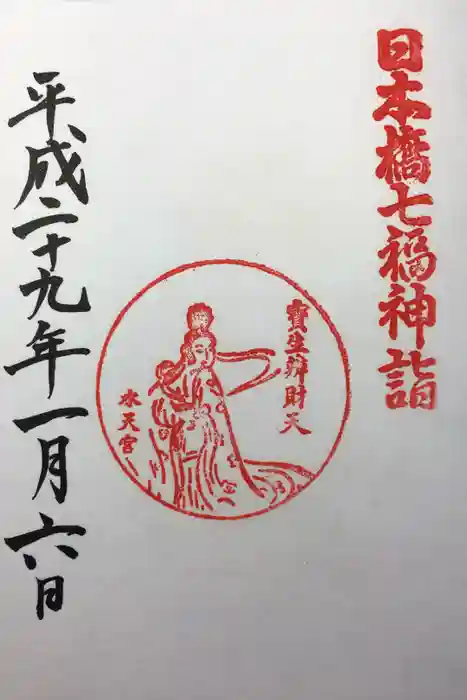 日本橋七福神詣
寳生辨財天
水天宮
平成二十九年一月六日